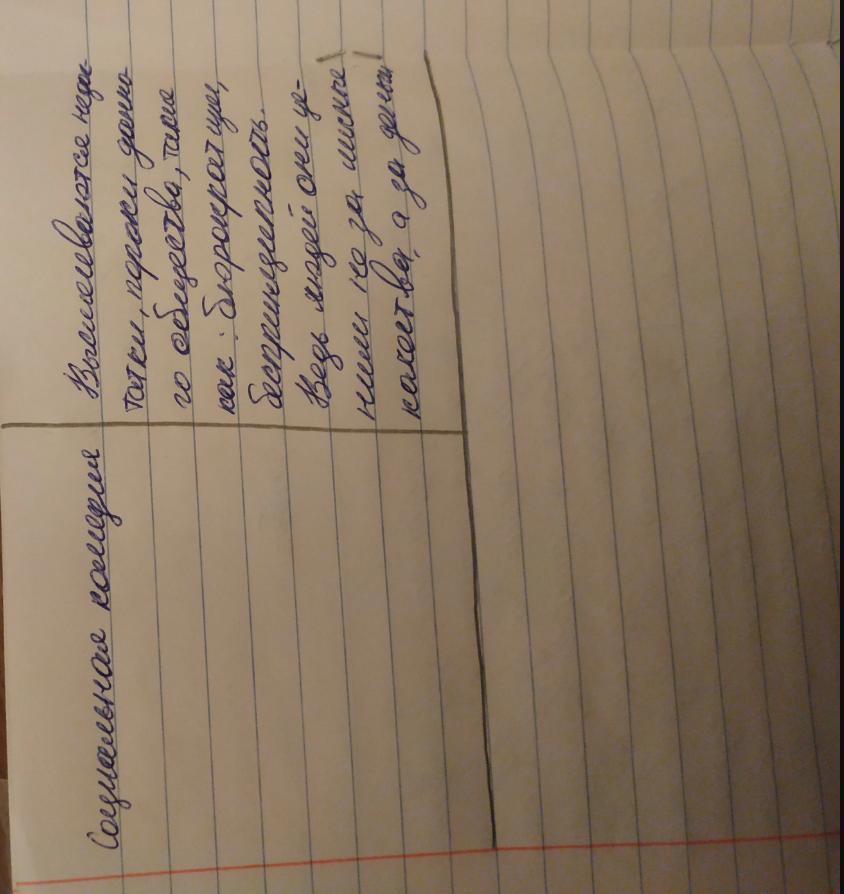 Социальная комедия
Высмеиваются недос-
татки, пороки данно-
го общества, такие
как: бюрократизм,
беспринципность.
Ведь людей они це-
нили не за личные
качества, а за деньги